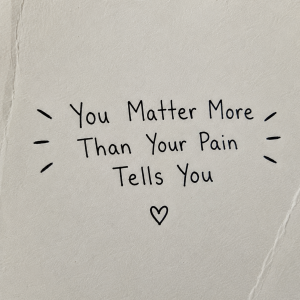 You Matter More
Than Your Pain
Tells You